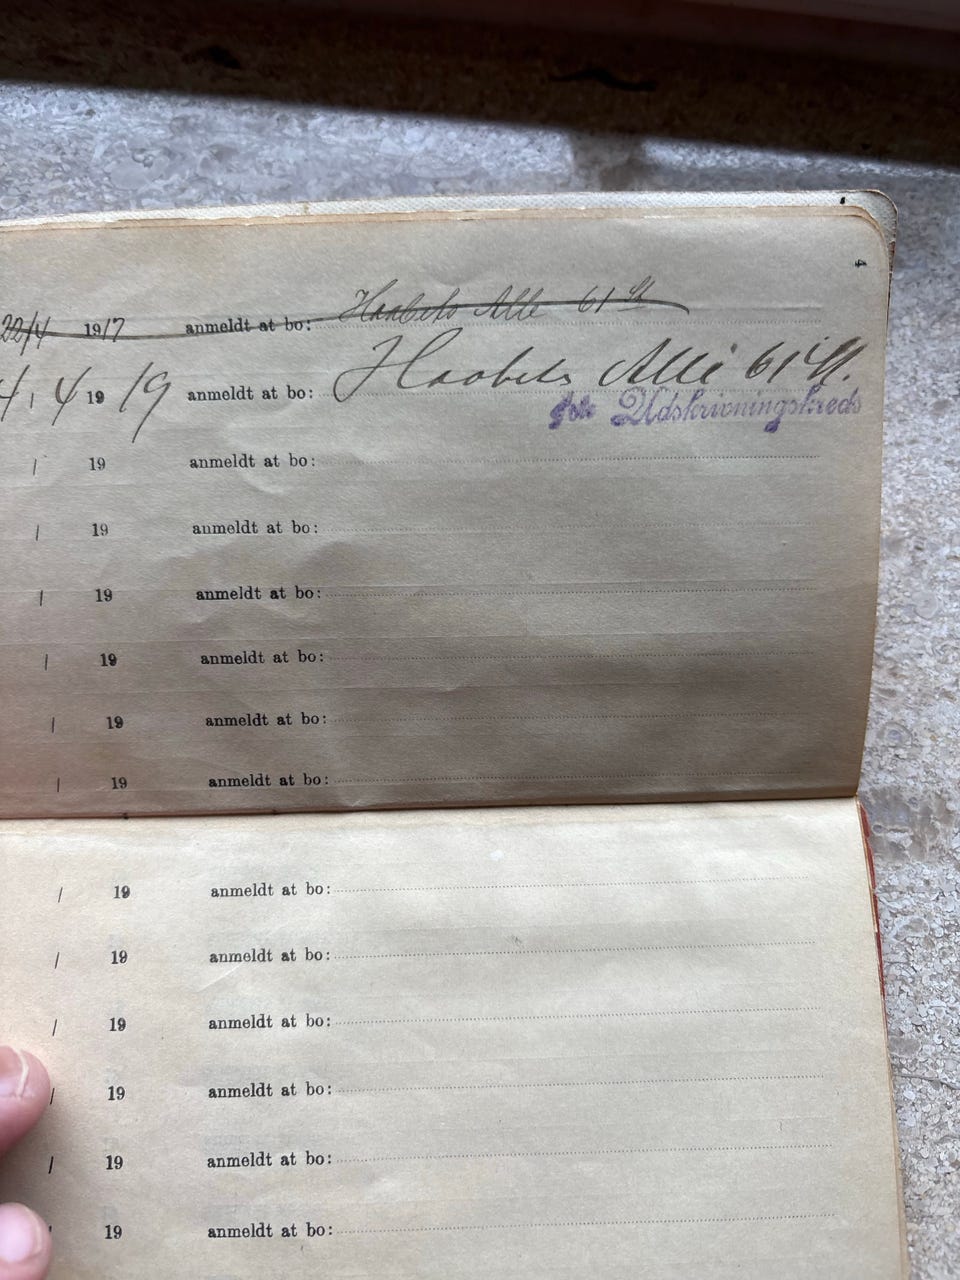 22/4 1917 anmeldt at bo: Haabets Alle 61 St
4/4 1919 anmeldt at bo: Haabets Allé 61 St.
Udskrivningskreds
/ 19 anmeldt at bo:
/ 19 anmeldt at bo:
/ 19 anmeldt at bo:
/ 19 anmeldt at bo:
/ 19 anmeldt at bo:
/ 19 anmeldt at bo:
/ 19 anmeldt at bo:
/ 19 anmeldt at bo:
/ 19 anmeldt at bo:
/ 19 anmeldt at bo:
/ 19 anmeldt at bo:
/ 19 anmeldt at bo: